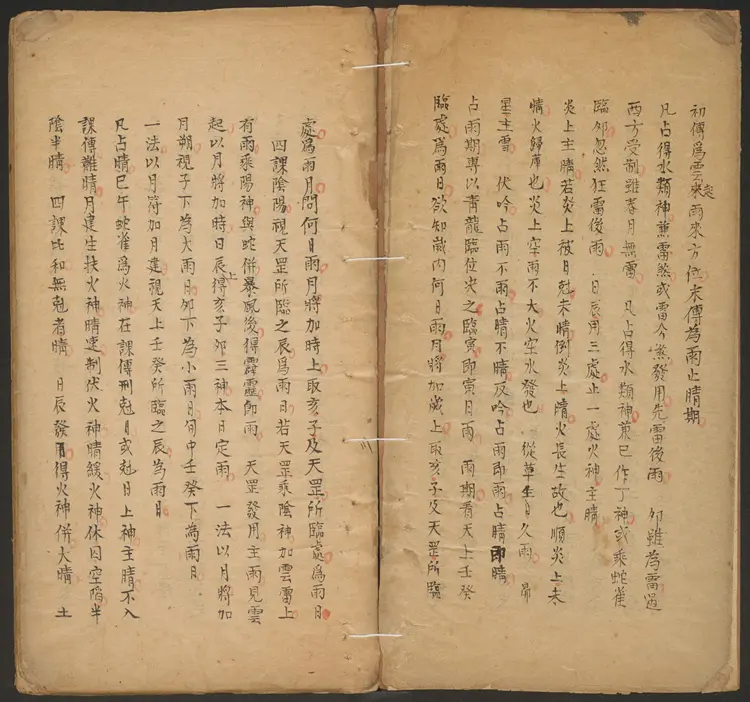 初傳為雲起來雨來方位末傳為雨止晴期
凡占得水類神兼雷煞或雷今煞發用先雷後雨　卯雖為雷遇
西方受制雖春月無雷　凡占得水類神兼巳作丁神或乘蛇雀
臨卯忽然狂雷後雨　日辰用三處止一處火神主晴
炎上主晴若炎上被月剋未晴例炎上晴火長生故也順炎上未
晴火歸庫也炎上空雨不大火空水發也　從革生日久雨　昴
星主雪　伏吟占雨不雨占晴不晴反吟占雨即雨占晴即晴
占雨期專以青龍臨位決之臨寅即寅日雨　雨期看天上壬癸
臨處為雨日欲知歲內何日雨月將加歲上取亥子及天罡所臨
處為雨月問何日雨月將加時上取亥子及天罡所臨處為雨日
四課陰陽視天罡所臨之辰為雨日若天罡乘陰神加雲雷上
有雨乘陽神與蛇併暴風後得霹靂即雨　天罡發用主雨見雲
起以月將加時日辰上得亥子卯三神本日定雨　一法以月將加
月朔視子下為大雨日卯下為小雨日旬中壬癸下為雨日
一法以月符加月建視天上壬癸所臨之辰為雨日
凡占晴巳午蛇雀為火神在課傳刑剋日或剋日上神主晴不入
課傳難晴月建生扶火神晴速制伏火神晴緩火神休囚空陷半
陰半晴　四課比和無剋者晴　日辰發用得火神併大晴　土